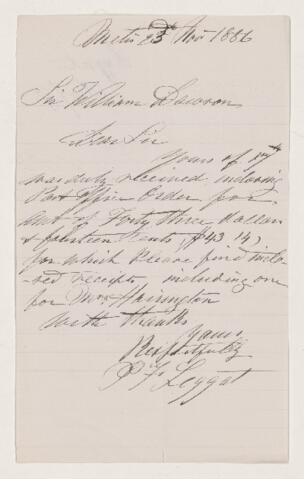 Metis 23rd Nov 1886
Sir William Dawson
Dear Sir
Yours of 17th
was duly received inclosing
Post Office Order for
amt of Forty three Dollars
& fourteen Cents ($43 14)
for which Please find inclo-
-sed receipts, including one
for Mrs Harrington
With Thanks
Yours
Respectfully
P F Leggat